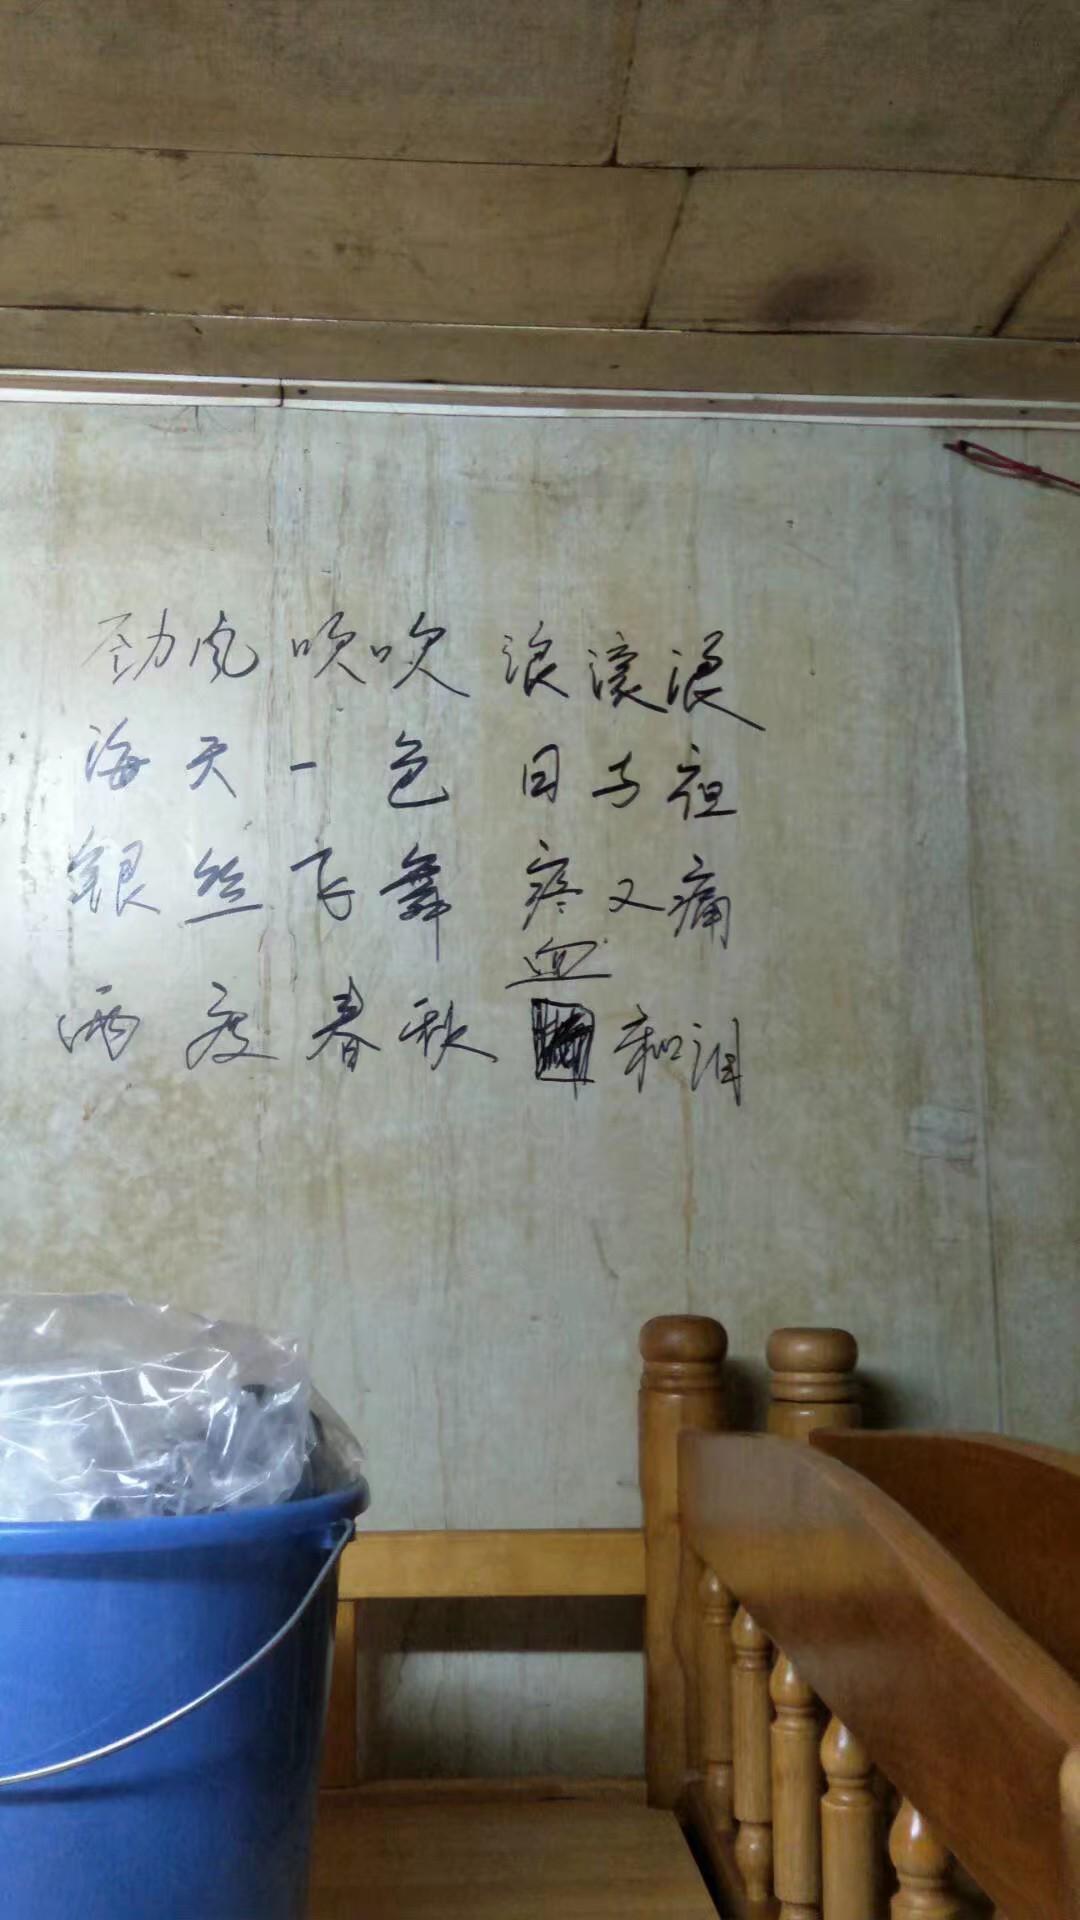 劲风吹吹浪滚浪
海天一色日与祖
银丝飞舞疼又痛
两度春秋血和泪